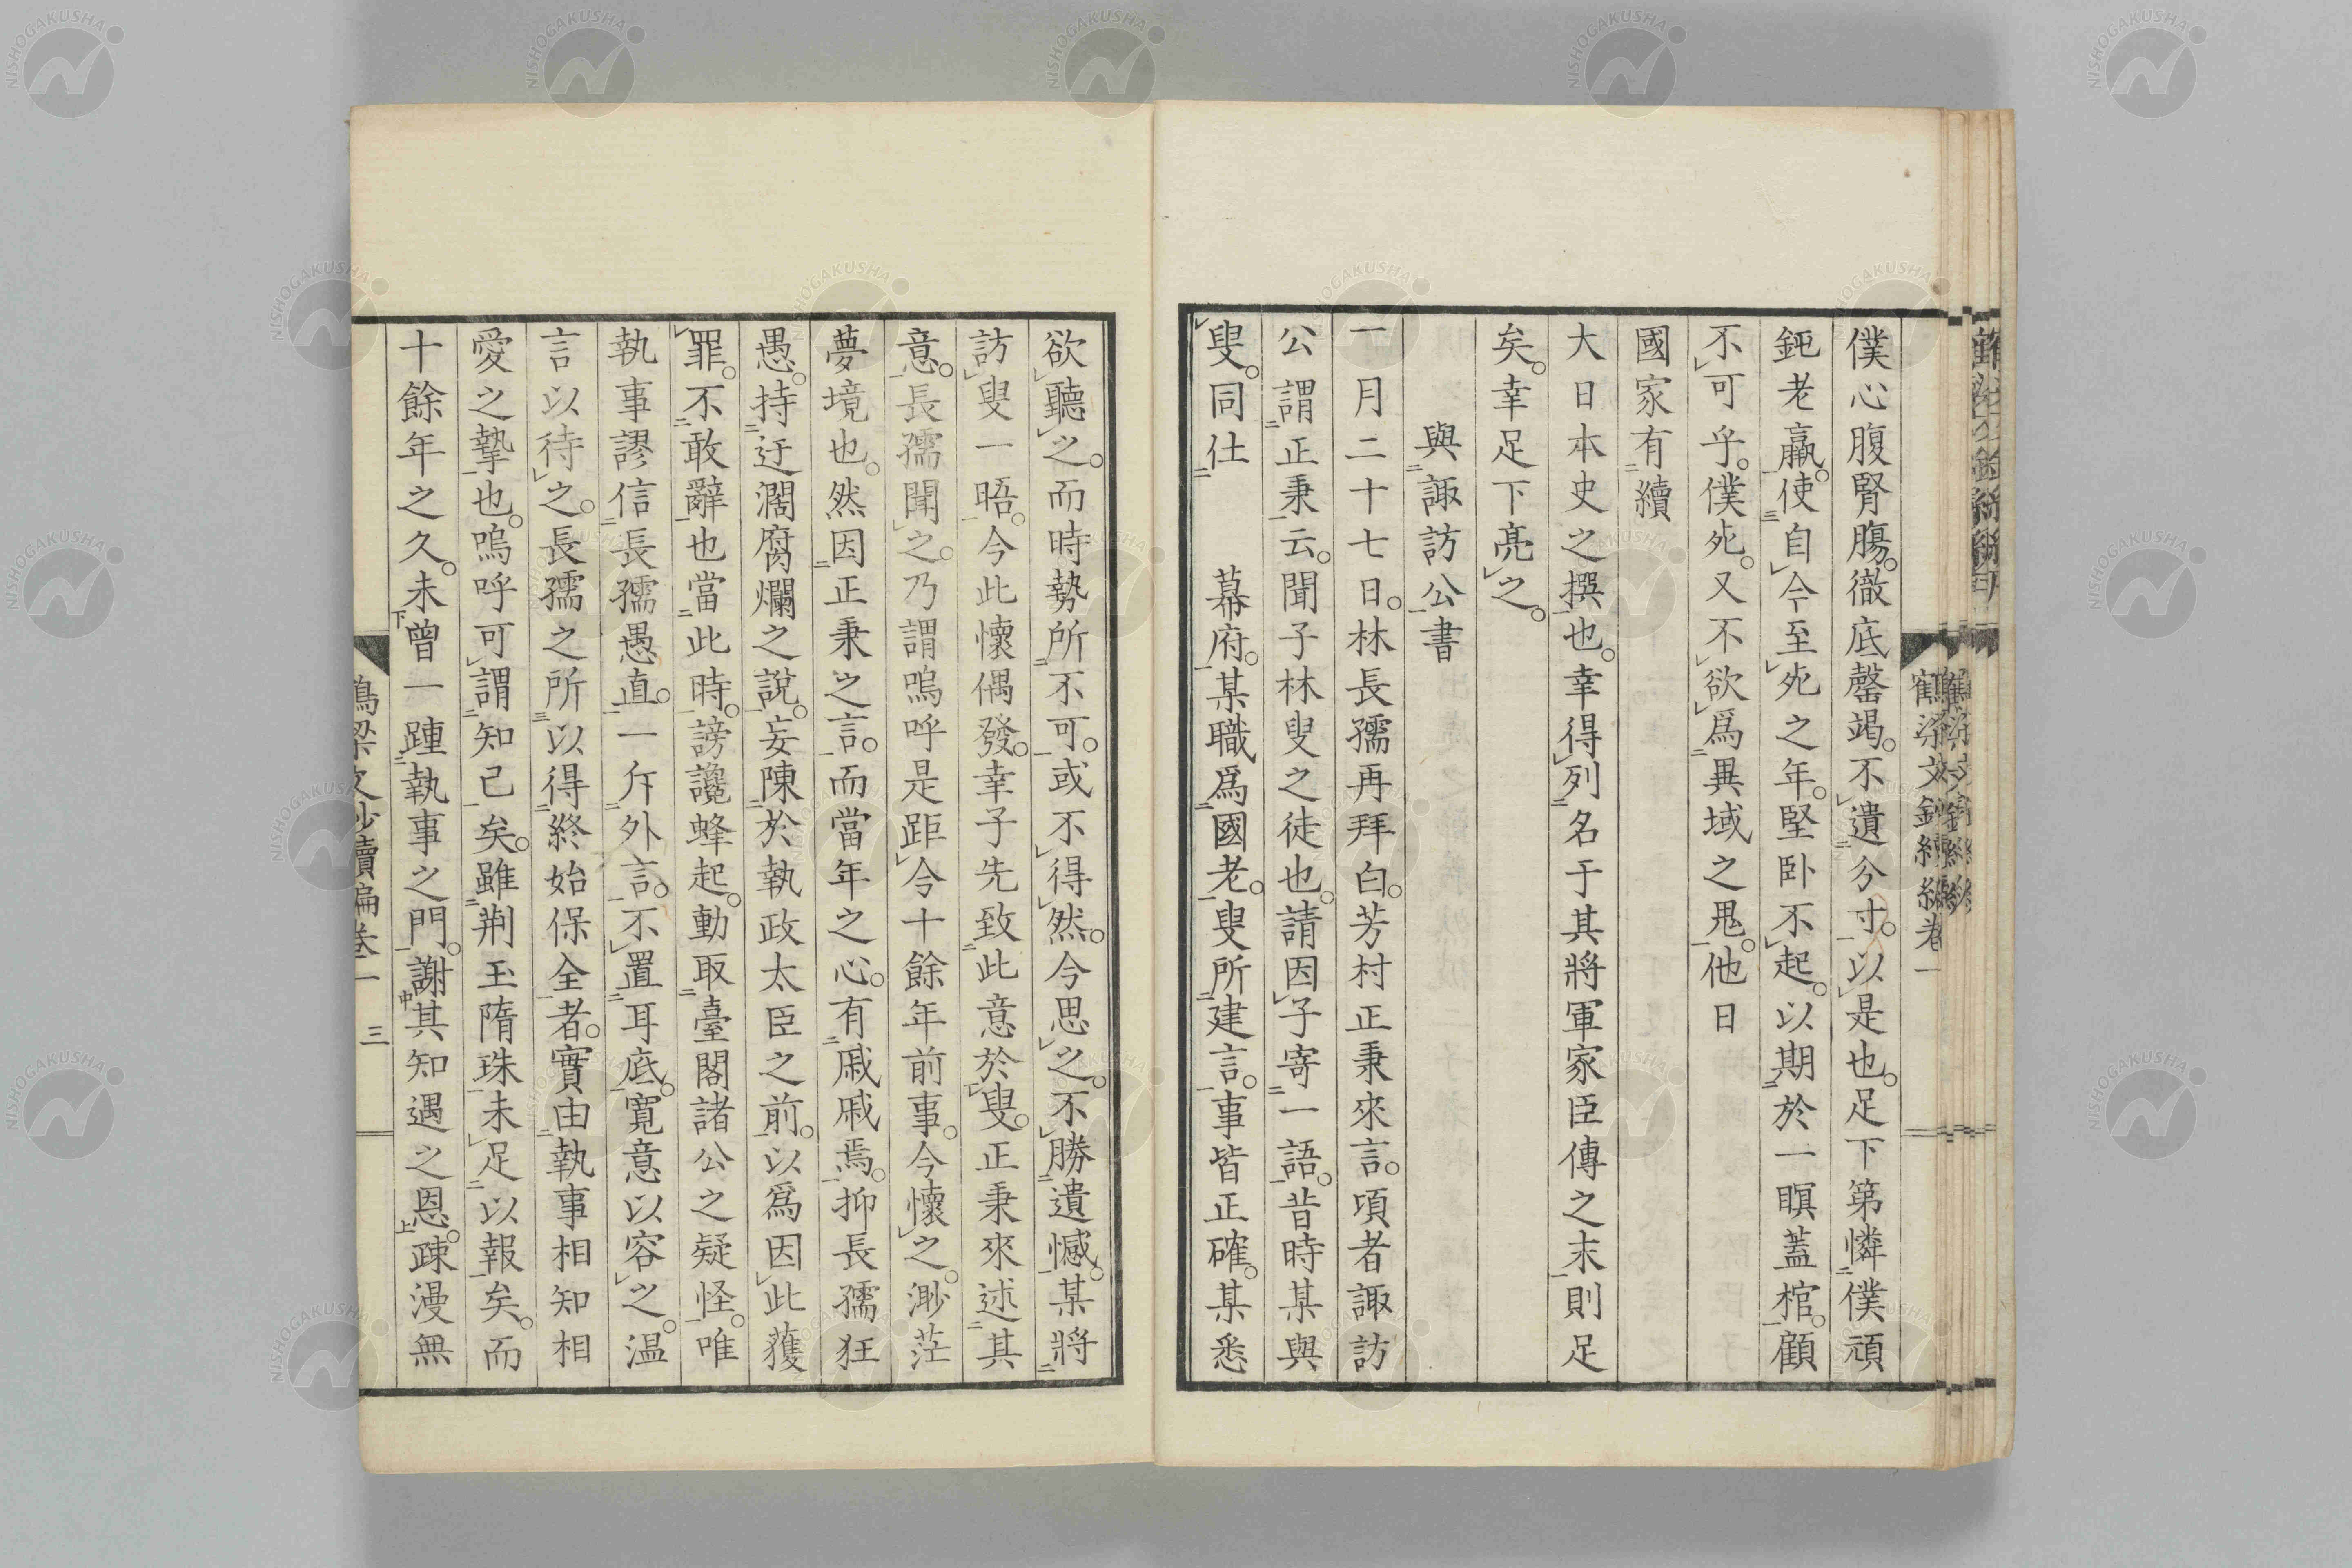 僕心腹腎腸。徹底罄竭。不遺分寸。以是也。足下第憐僕頑
鈍老羸。使自今至死之年。堅臥不起。以期於一瞑蓋棺。顧
不可乎。僕死。又不欲爲異域之鬼。他日
國家有續
大日本史之撰也。幸得列名于其將軍家臣傳之末則足
矣。幸足下亮之。
與諏訪公書
一月二十七日。林長孺再拜白。芳村正秉來言。頃者諏訪
公謂正秉云。聞子林叟之徒也。請因子寄一語。昔時某與
叟。同仕 幕府。某職爲國老。叟所建言。事皆正確。某悉
欲聽之。而時勢所不可。或不得然。今思之。不勝遺憾。某將
訪叟一晤。今此懷偶發。幸子先致此意於叟。正秉來述其
意。長孺聞之。乃謂嗚呼是距今十餘年前事。今懷之。渺茫
夢境也。然因正秉之言。而當年之心。有戚戚焉。抑長孺狂
愚。持迂濶腐爛之說。妄陳於執政太臣之前。以爲因此獲
罪。不敢辭也當此時。謗讒蜂起。動取臺閣諸公之疑怪。唯
執事謬信長孺愚直。一斥外言。不置耳底。寬意以容之。温
言以待之。長孺之所以得終始保全者。實由執事相知相
愛之摯也。嗚呼可謂知己矣。雖荆玉隋珠。未足以報矣。而
十餘年之久。未曾一踵執事之門。謝其知遇之恩。疎漫無
鶴梁文鈔續編卷一 三
鶴梁文鈔續編卷一